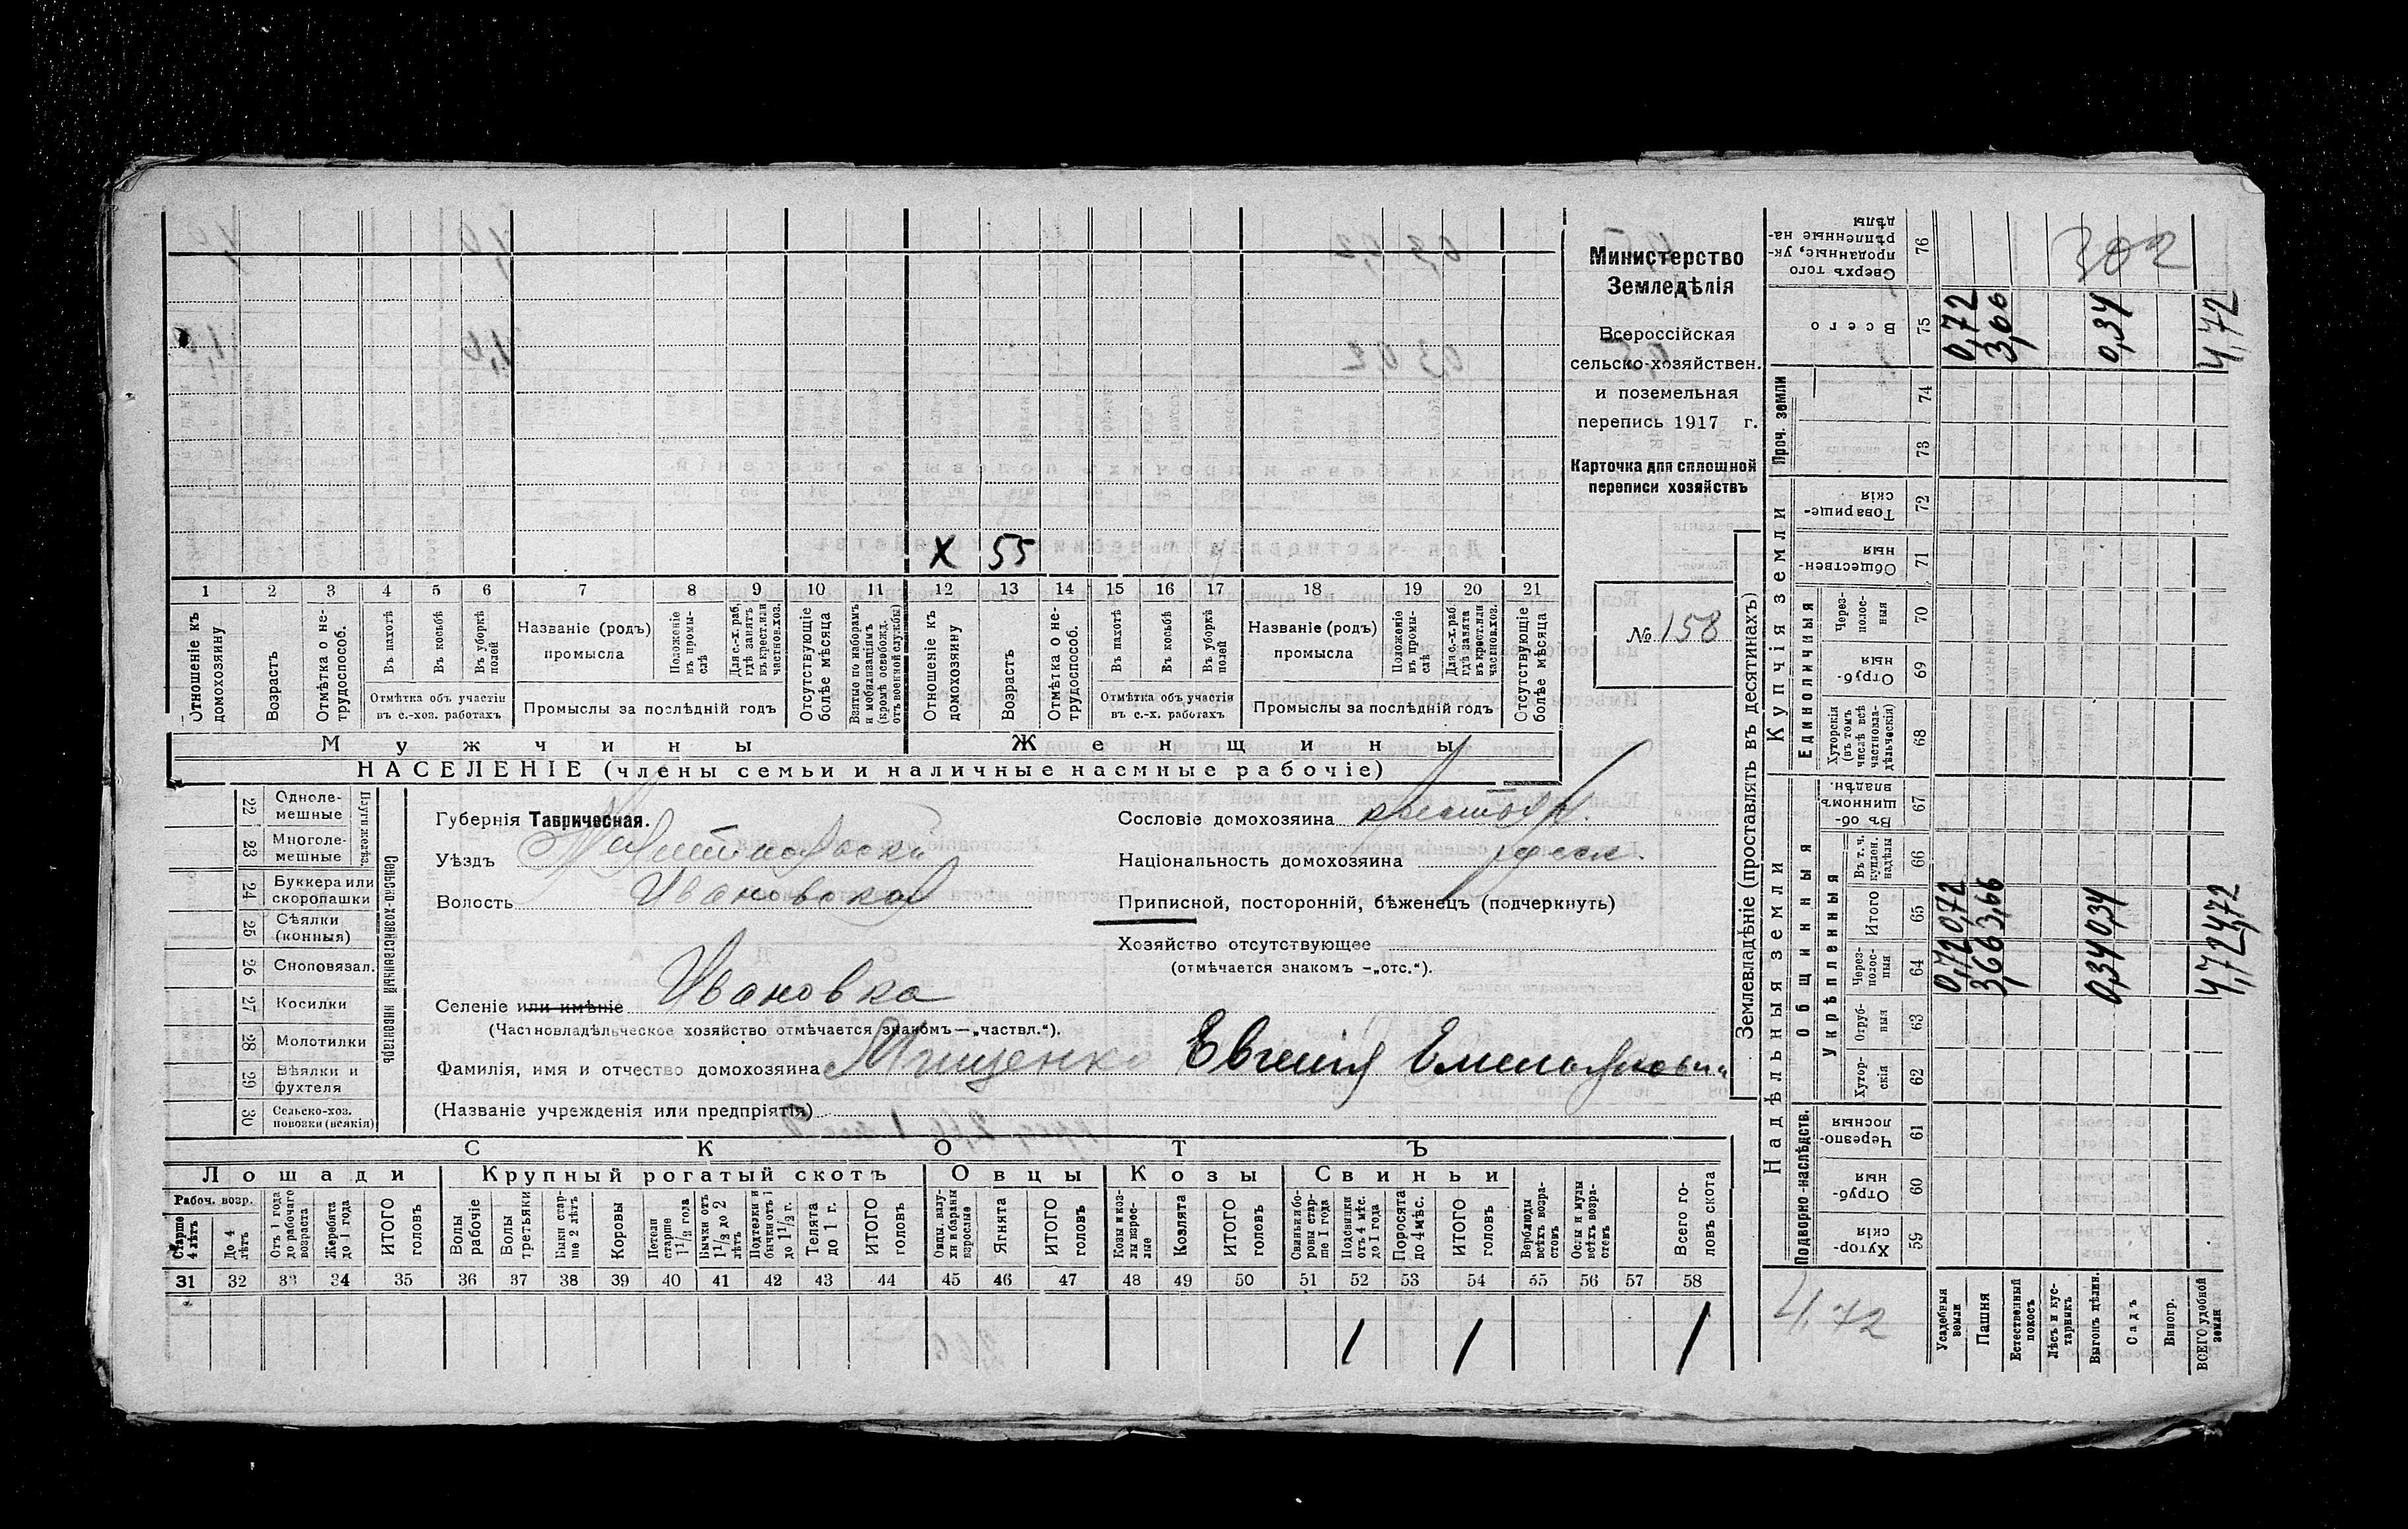 Министерство
Земледѣлія
Всероссійская
сельско-хозяйствен.
и поземельная
перепись 1917 г.
Карточка для сплошной
переписи хозяйствъ
№ 158
X 55
1 2 3 4 5 6 7 8 9 10 11 12 13 14 15 16 17 18 19 20 21
Отношеніе къ домохозяину
Возрастъ
Отмѣтка о не-трудоспособ.
Въ пахотѣ
Въ косьбѣ
Въ уборкѣ полей
Отмѣтка объ участіи въ с.-хоз. работахъ
Названіе (родъ) промысла
Положеніе въ промы-слѣ
Для с.-х. раб. гдѣ занятъ въ крест. или частнов. хоз.
Промыслы за послѣдній годъ
Отсутствующіе болѣе мѣсяца
Взятые по наборамъ и мобилизаціямъ (кромѣ освобожд. отъ военной службы)
Отношеніе къ домохозяину
Возрастъ
Отмѣтка о не-трудоспособ.
Въ пахотѣ
Въ косьбѣ
Въ уборкѣ полей
Отмѣтка объ участіи въ с.-х. работахъ
Названіе (родъ) промысла
Положеніе въ промы-слѣ
Для с.-х. раб. гдѣ занята въ крест. или частнов. хоз.
Промыслы за послѣдній годъ
Отсутствующіе болѣе мѣсяца
Мужчины Женщины
НАСЕЛЕНІЕ (члены семьи и наличные наемные рабочіе)
Сельско-хозяйственный инвентарь
Плуги желѣз.
22 Одноле-мешные
23 Многоле-мешные
24 Буккера или скоропашки
25 Сѣялки (конныя)
26 Сноповязал.
27 Косилки
28 Молотилки
29 Вѣялки и фухтеля
30 Сельско-хоз. повозки (всякія)
Губернія Таврическая.
Уѣздъ Мелитопольскій
Волость Ивановская
Селеніе или имѣніе Ивановка
(Частновладѣльческое хозяйство отмѣчается знакомъ—„частвл.“).
Фамилія, имя и отчество домохозяина Мищенко Евгенія
(Названіе учрежденія или предпріятія)
Сословіе домохозяина
Національность домохозяина русск.
Приписной, посторонній, бѣженецъ (подчеркнуть)
Хозяйство отсутствующее
(отмѣчается знакомъ —„отс.“).
СКОТЪ
Лошади Крупный рогатый скотъ Овцы Козы Свиньи
Рабоч. возр.
Старше 4 лѣтъ
До 4 лѣтъ
Отъ 1 года до рабочаго возраста
Жеребята до 1 года
ИТОГО головъ
Волы рабочіе
Волы третьяки
Быки стар-ше 2 лѣтъ
Коровы
Нетели старше 1½ года
Бычки отъ 1½ до 2 лѣтъ
Подтелки и бычки отъ 1 до 1½ г.
Телята до 1 г.
ИТОГО головъ
Овцы, валу-хи и бараны взрослые
Ягнята
ИТОГО головъ
Козы и коз-лы взрос-лые
Козлята
ИТОГО головъ
Свиньи и бо-ровы стар-ше 1 года
Подсвинки отъ 4 мѣс. до 1 года
Поросята до 4 мѣс.
ИТОГО головъ
Верблюды всѣхъ возра-стовъ
Ослы и мулы всѣхъ возра-стовъ
Всего го-ловъ скота
31 32 33 34 35 36 37 38 39 40 41 42 43 44 45 46 47 48 49 50 51 52 53 54 55 56 57 58
1 1 1
Землевладѣніе (проставлять въ десятинахъ)
Надѣльныя земли Купчія земли Проч. земли
Подворно-наслѣдств.
Общинныя
Укрѣпленныя
Единоличныя
59 Хутор-скія
60 Отруб-ныя
61 Черезпо-лосныя
62 Хутор-скія
63 Отруб-ныя
64 Черес-полос-ныя
65 Итого
66 Въ т. ч. куплен. надѣлы
67 Въ об-щинномъ владѣн.
68 Хуторскія (въ томъ числѣ всѣ частновла-дѣльческія)
69 Отруб-ныя
70 Черес-полос-ныя
71 Обществен-ныя
72 Товарище-скія
73
74
75 Всего
76 Сверхъ того проданные, ук-рѣпленные на-дѣлы
Усадебныя земли 0,72 0,72 0,72
Пашня 3,66 3,66 3,66
Естественный покосъ
Лѣсъ и кус-тарникъ
Выгонъ дѣлин. 0,34 0,34 0,34
Садъ
Виногр.
ВСЕГО удобной земли 4,72 4,72 4,72
302
4.72